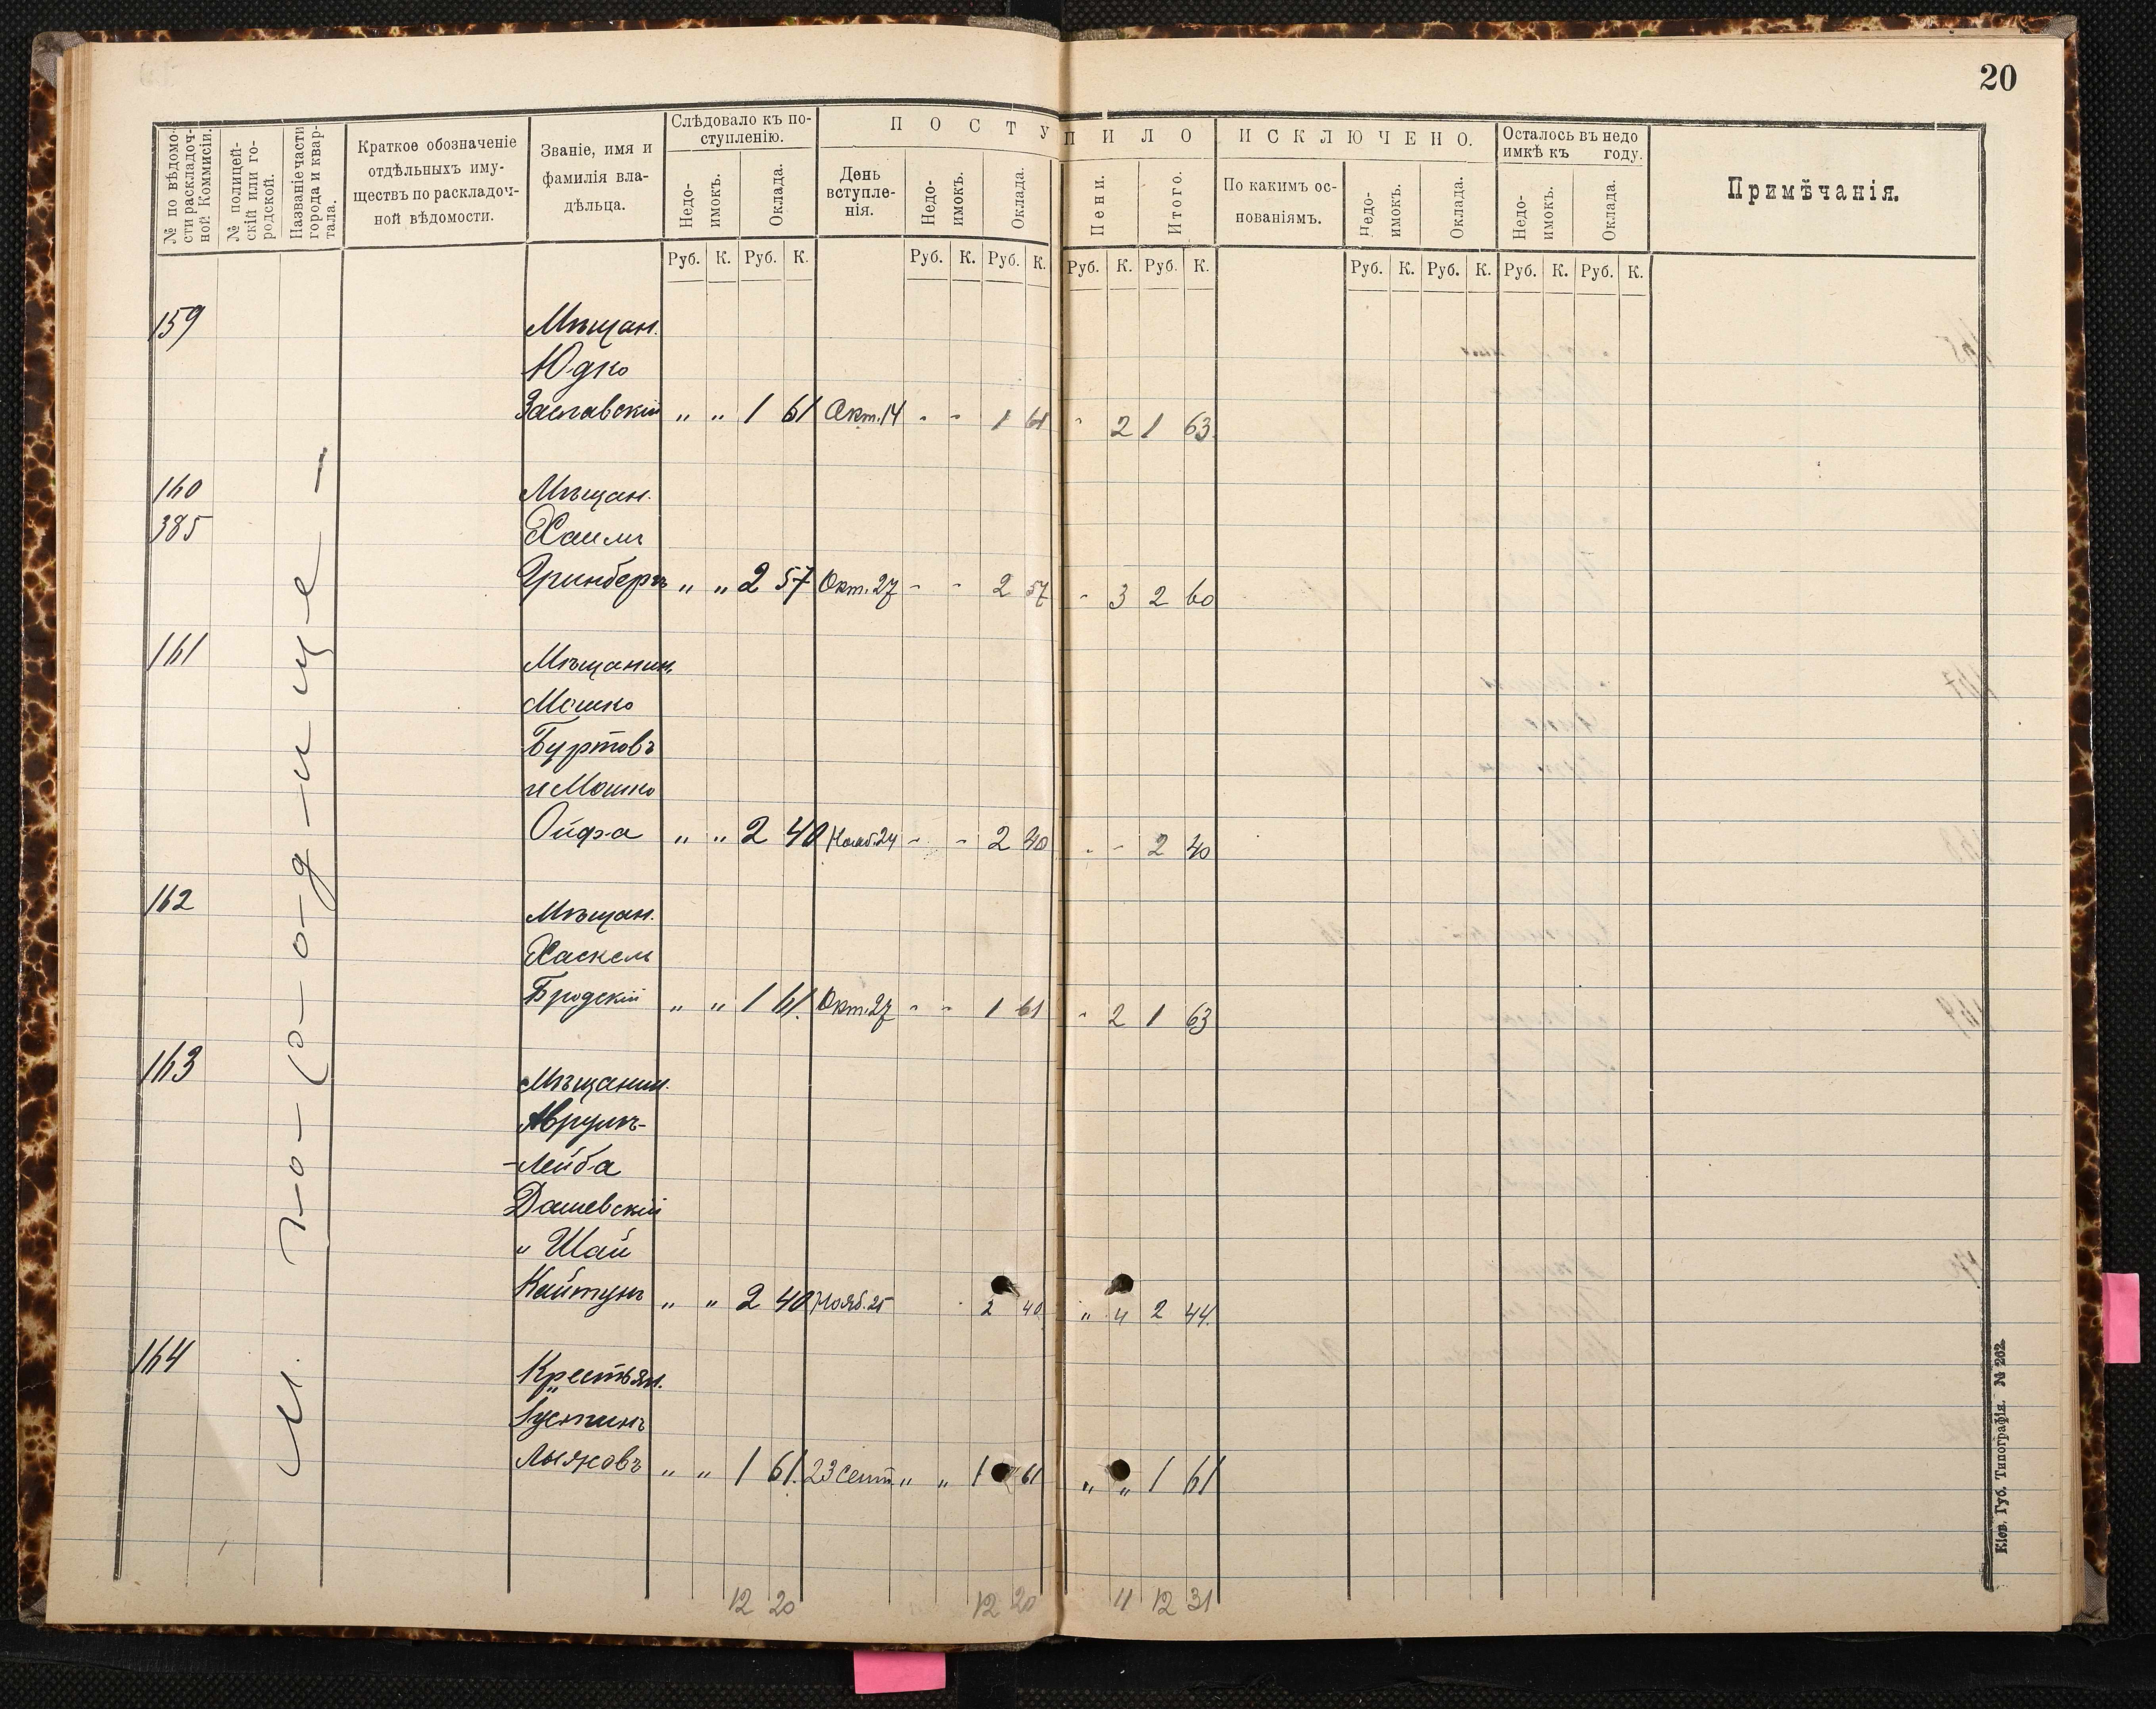 20
№ по вѣдомо-
сти раскладоч-
ной Коммисіи.
№ полицей-
скій или го-
родской.
Названіе части
города и квар-
тала.
Краткое обозначеніе
отдѣльныхъ иму-
ществъ по раскладоч-
ной вѣдомости.
Званіе, имя и
фамилія вла-
дѣльца.
Слѣдовало къ по-
ступленію.
Недо-
имокъ.
Оклада.
ПОСТУПИЛО
День
вступле-
нія.
Недо-
имокъ.
Оклада.
Пени.
Итого.
ИСКЛЮЧЕНО.
По какимъ ос-
нованіямъ.
Недо-
имокъ.
Оклада.
Осталось въ недо
имкѣ къ году.
Недо-
имокъ.
Оклада.
Примѣчанія.
Руб. К. Руб. К. Руб. К. Руб. К. Руб. К. Руб. К. Руб. К. Руб. К. Руб. К. Руб. К.
м. Го-ро-о-д-и-ще-
159 Мѣщан.
Юдко
Заславскій „ „ 1 61 Окт. 14 - - 1 61 - 2 1 63
160 Мѣщан.
385 Хаимъ
Гринбергъ „ „ 2 57 Окт. 27 - - 2 57 - 3 2 60
161 Мѣщанин.
Мошко
Буртовъ
и Мошко
Ойфа „ „ 2 40 Нояб. 24 - - 2 40 - - 2 40
162 Мѣщан.
Хаскель
Бродскій „ „ 1 61. Окт. 27 - - 1 61 - 2 1 63
163 Мѣщанин.
Аврумъ-
-Лейба
Дашевскій
„ Шай
Кайтунъ „ „ 2 40 Нояб. 25 2 40 „ 4 2 44.
164 Крестьян.
Іустинъ
„ „ 1 61. 23 Сент. „ „ 1 61 „ „ 1 61
12 20 12 20 11 12 31
Кіев. Губ. Типографія. № 262